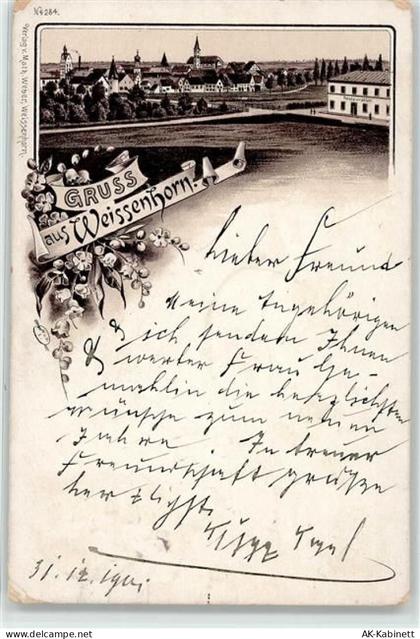 No 284.
Verlag v. Math. Weber, Weissenhorn.
GRUSS
aus Weissenhorn.
Lieber Freund
Meine Angehörigen
& ich senden Ihnen
& werter Frau Ge-
mahlin die herzlichsten
wünsche zum neuen
Jahre In treuer
Freundschaft grüßen
herzlichst
31. 12. 1901
© www.ak-ansichtskarten.de
AK-Kabinett.